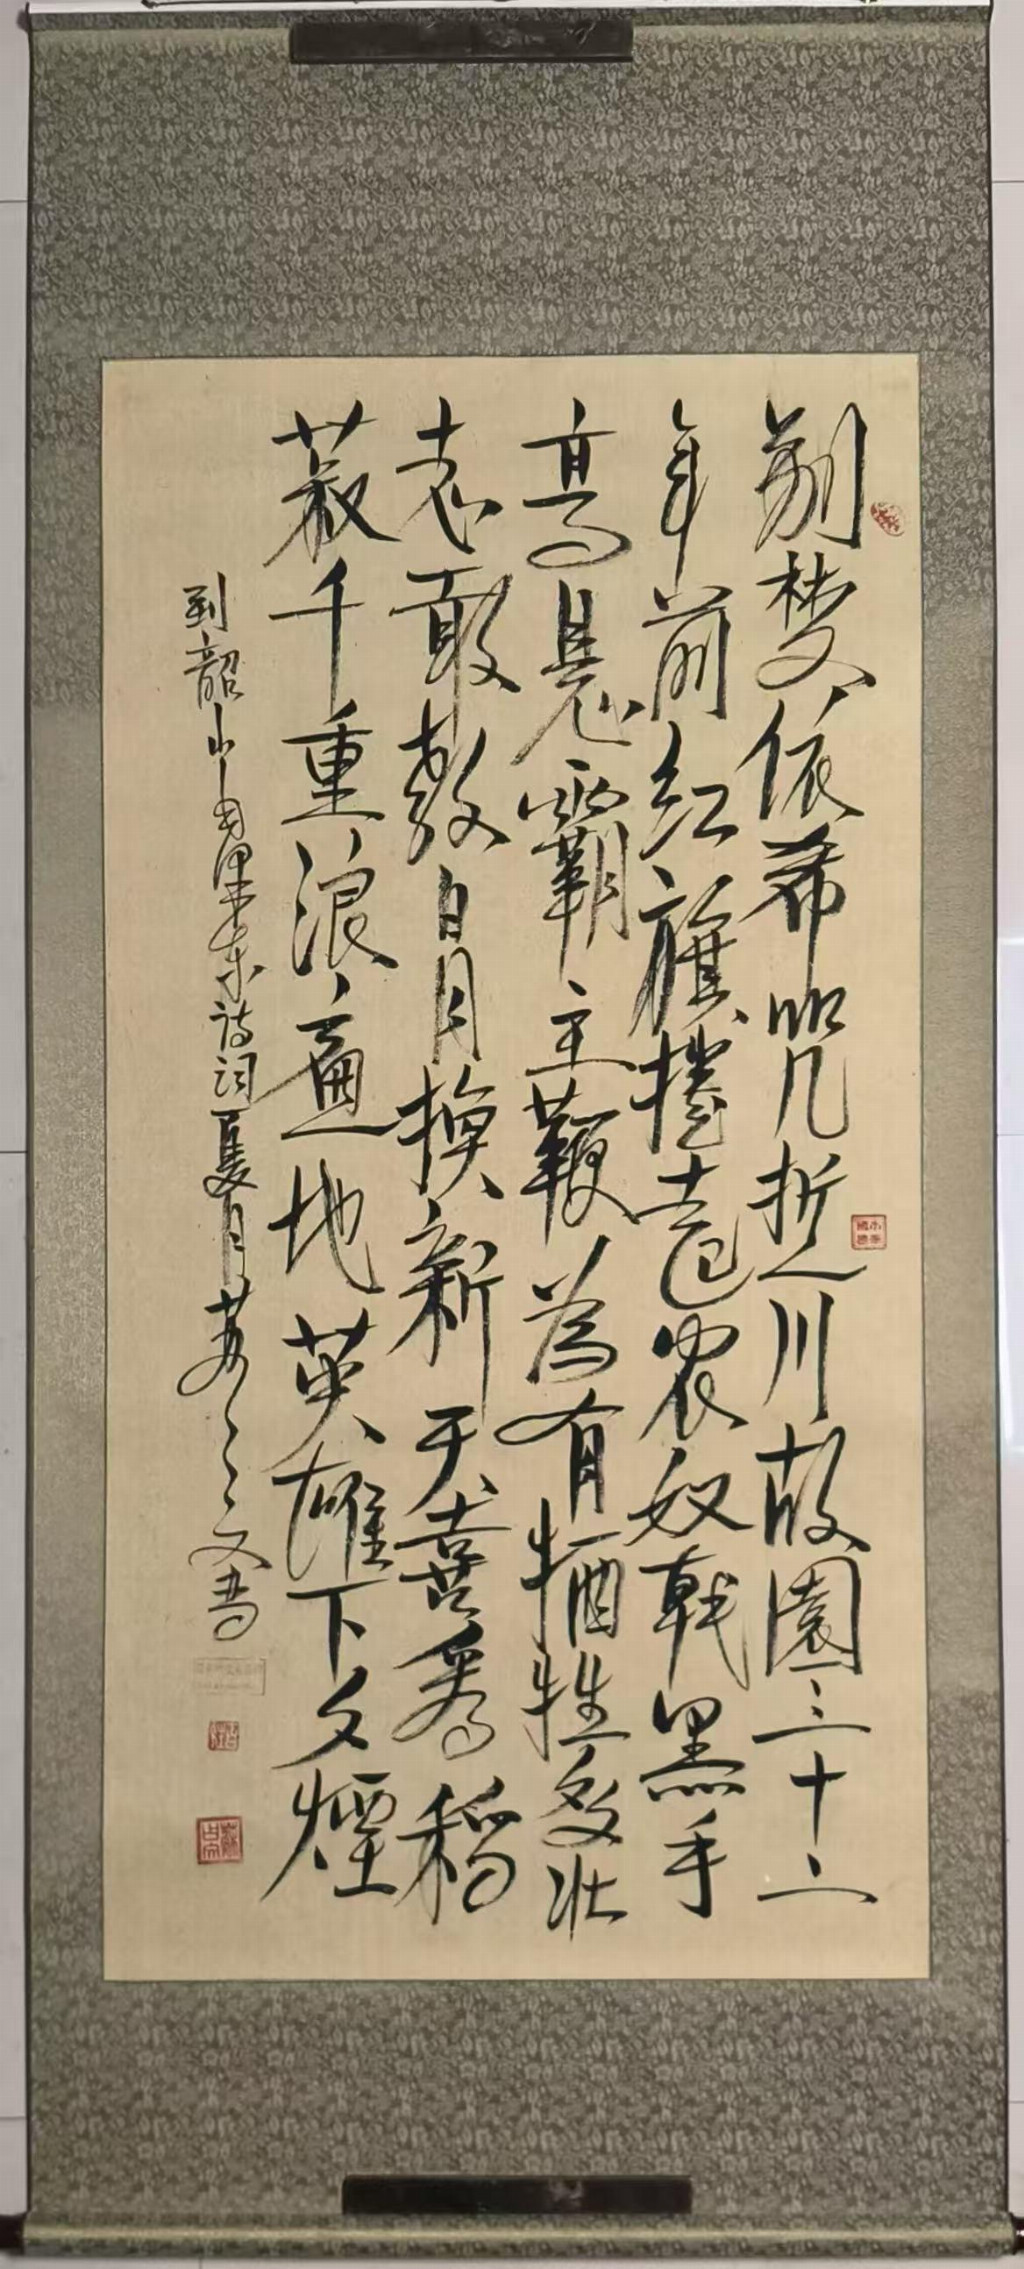 别梦依希咒逝川故園三十二
年前红旗捲起农奴戟黑手
高悬霸主鞭為有牺牲多壮
志敢教日月换新天喜看稻
菽千重浪遍地英雄下夕煙
到韶山 東诗词夏月 文书